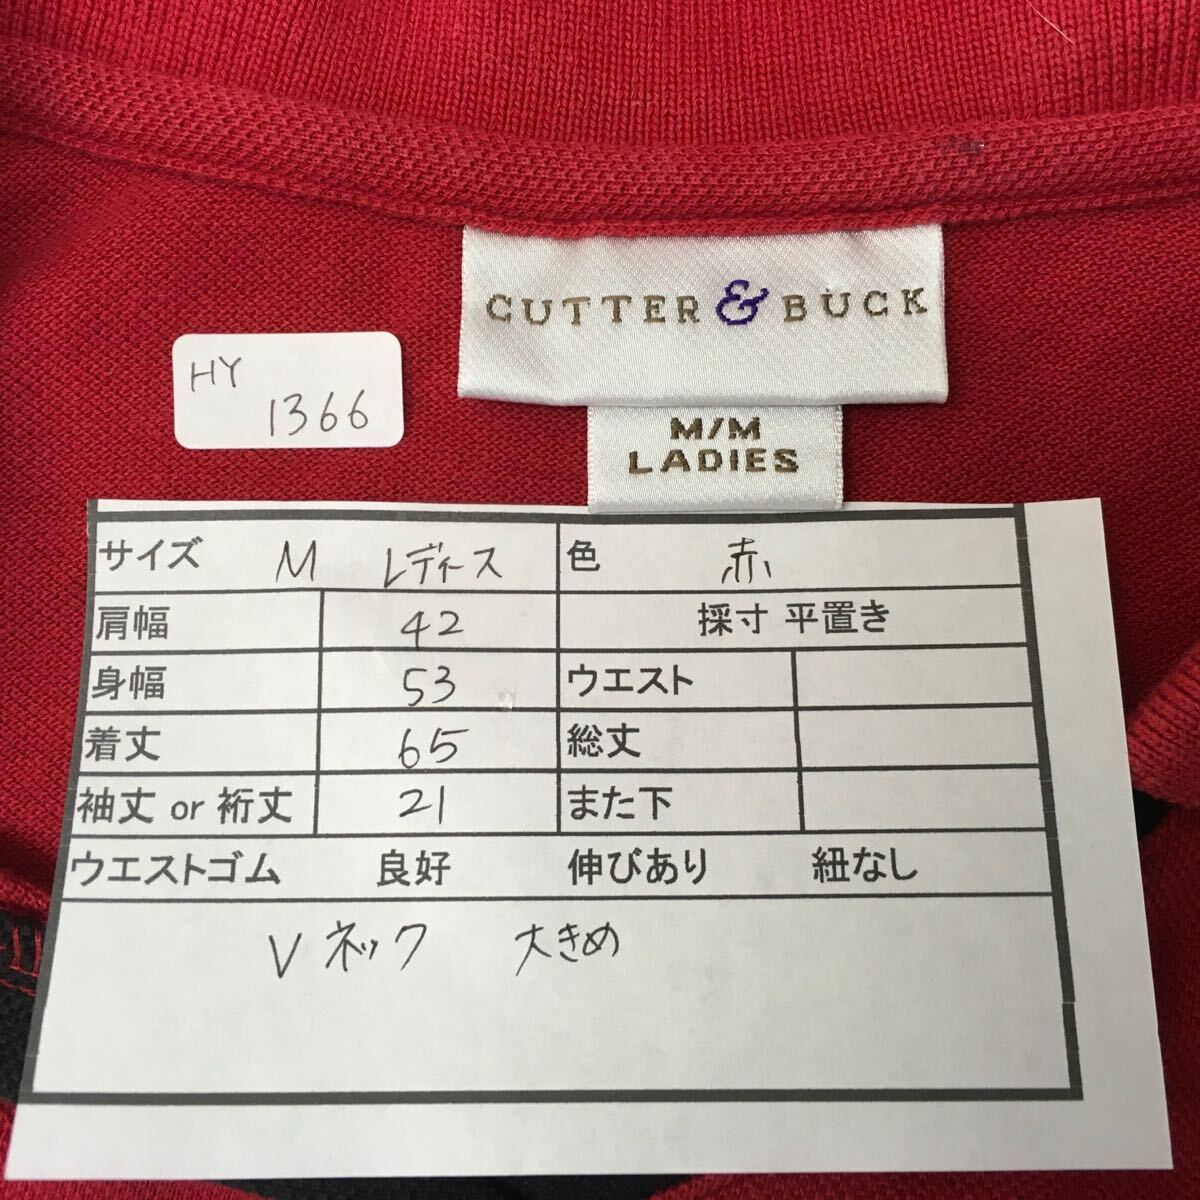 CUTTER & BUCK
M/M
LADIES
HY
1366
サイズ M レディース 色 赤
肩幅 42 採寸 平置き
身幅 53 ウエスト
着丈 65 総丈
袖丈 or 裄丈 21 また下
ウエストゴム 良好 伸びあり 紐なし
Vネック 大きめ